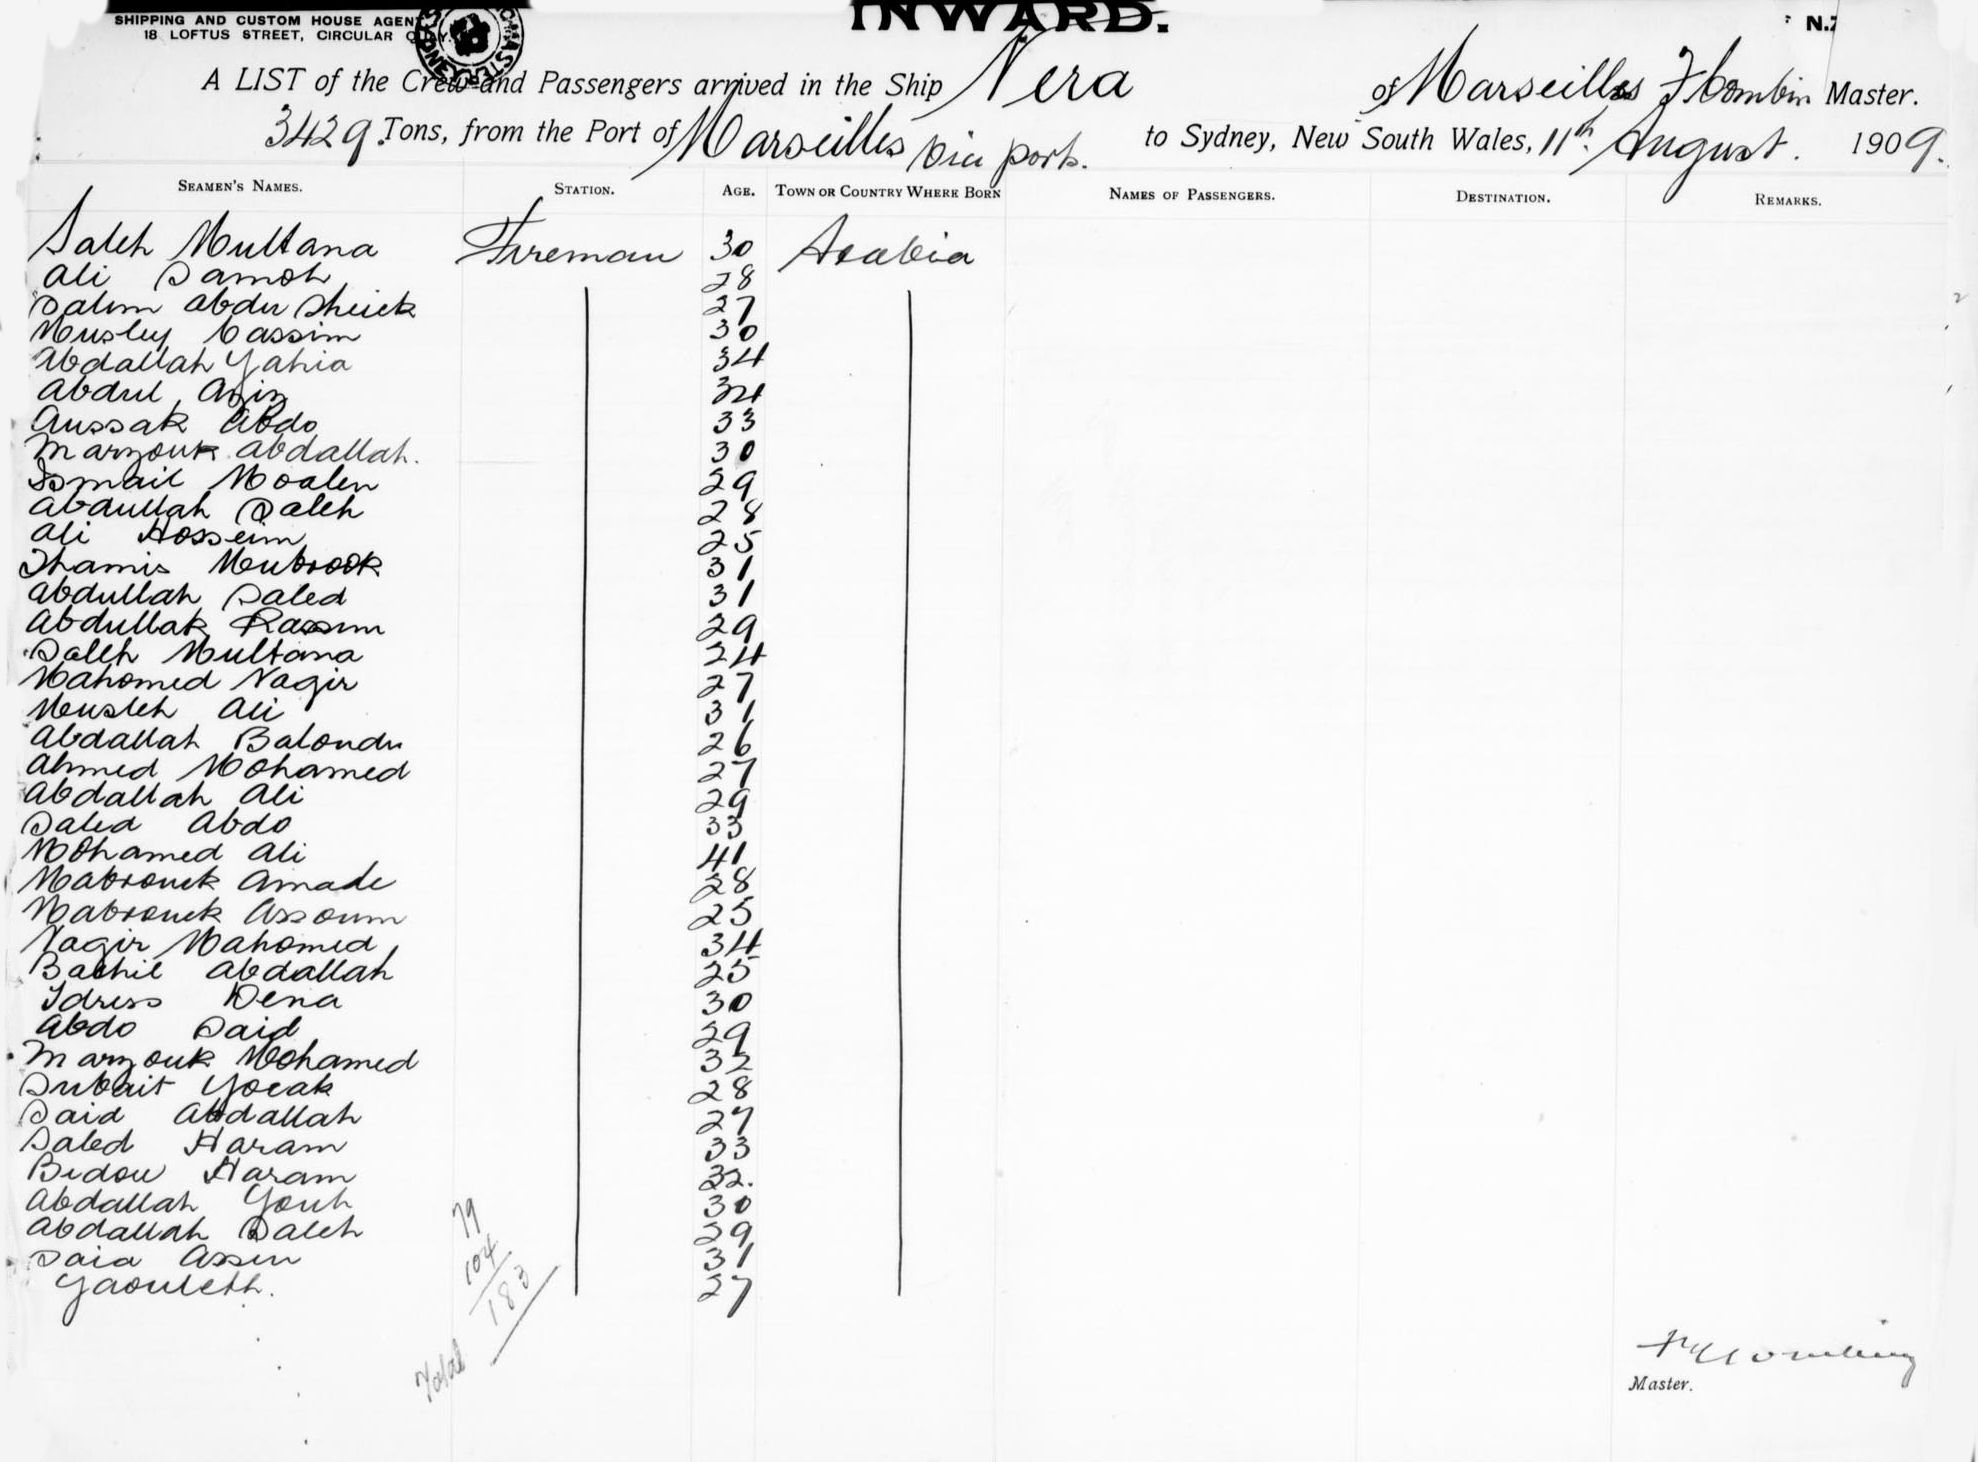 INWARD.
SHIPPING AND CUSTOM HOUSE AGENT
18 LOFTUS STREET, CIRCULAR QUAY
A LIST of the Crew and Passengers arrived in the Ship Nera of Marseilles Master.
3429 Tons, from the Port of Marseilles via ports. to Sydney, New South Wales, 11th August. 1909.
SEAMEN'S NAMES. STATION. AGE. TOWN OR COUNTRY WHERE BORN NAMES OF PASSENGERS. DESTINATION. REMARKS.
Saleh Multana Fireman 30 Arabia
Ali Samoh 28
Salem Abdu Sheick 27
Musley Cassim 30
Abdallah Yahia 34
Abdul Aziz 34
Aussak Abdo 33
Marzouk Abdallah. 30
Ismail Moalen 29
Abdullah Saleh 28
Ali Hosseim 25
Thamis Mubrook 31
Abdullah Saled 31
Abdullak Rassim 29
Saleh Multana 24
Mahomed Nagir 27
Musleh Ali 31
Abdallah Baloudu 26
Ahmed Mohamed 27
Abdallah Ali 29
Saled Abdo 33
Mohamed Ali 41
Mabrouck Amade 28
Mabrouck Assoum 25
Nagir Mahomed 34
Bachil Abdallah 25
Idress Dena 30
Abdo Said 29
Marzouk Mohamed 32
Subait Yocak 28
Said Abdallah 27
Saled Haram 33
Bedou Haram 32.
Abdallah Youh 30
Abdallah Saleh 29
Said Assen 31
Yaouleth. 27
79
104
Total 183
Master.